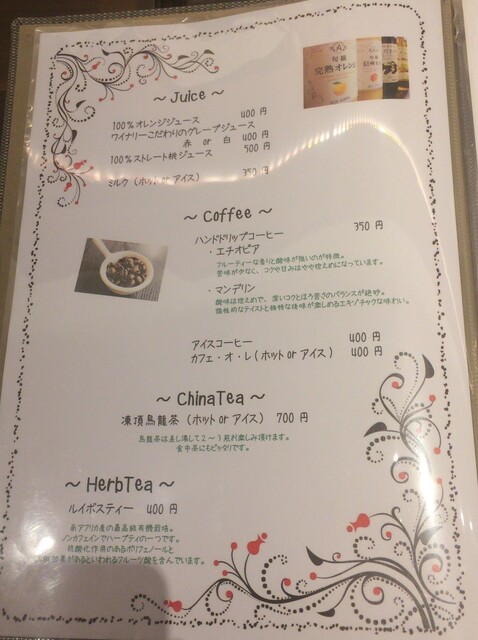 旬搾
完熟オレンジ
~ Juice ~
100%オレンジジュース 400 円
ワイナリーこだわりのグレープジュース
赤 or 白 400 円
100%ストレート桃ジュース 500 円
ミルク (ホット or アイス) 350 円
~ Coffee ~
ハンドドリップコーヒー 350 円
・エチオピア
フルーティーな香りと酸味が強いのが特徴。
苦味が少なく、コクや甘みはやや控えめになっています。
・マンデリン
酸味は控えめで、深いコクとほろ苦さのバランスが絶妙。
個性的なテイストと独特な後味が楽しめるエキゾチックな味わい。
アイスコーヒー 400 円
カフェ・オ・レ(ホット or アイス) 400 円
~ ChinaTea ~
凍頂烏龍茶 (ホット or アイス) 700 円
烏龍茶は差し湯して2～3煎お楽しみ頂けます。
食中茶にもピッタリです。
~ HerbTea ~
ルイボスティー 400 円
南アフリカ産の最高級有機栽培。
ノンカフェインでハーブティの一つです。
抗酸化作用のあるポリフェノールと
効果があるといわれるフルーツ酸を含んでいます。